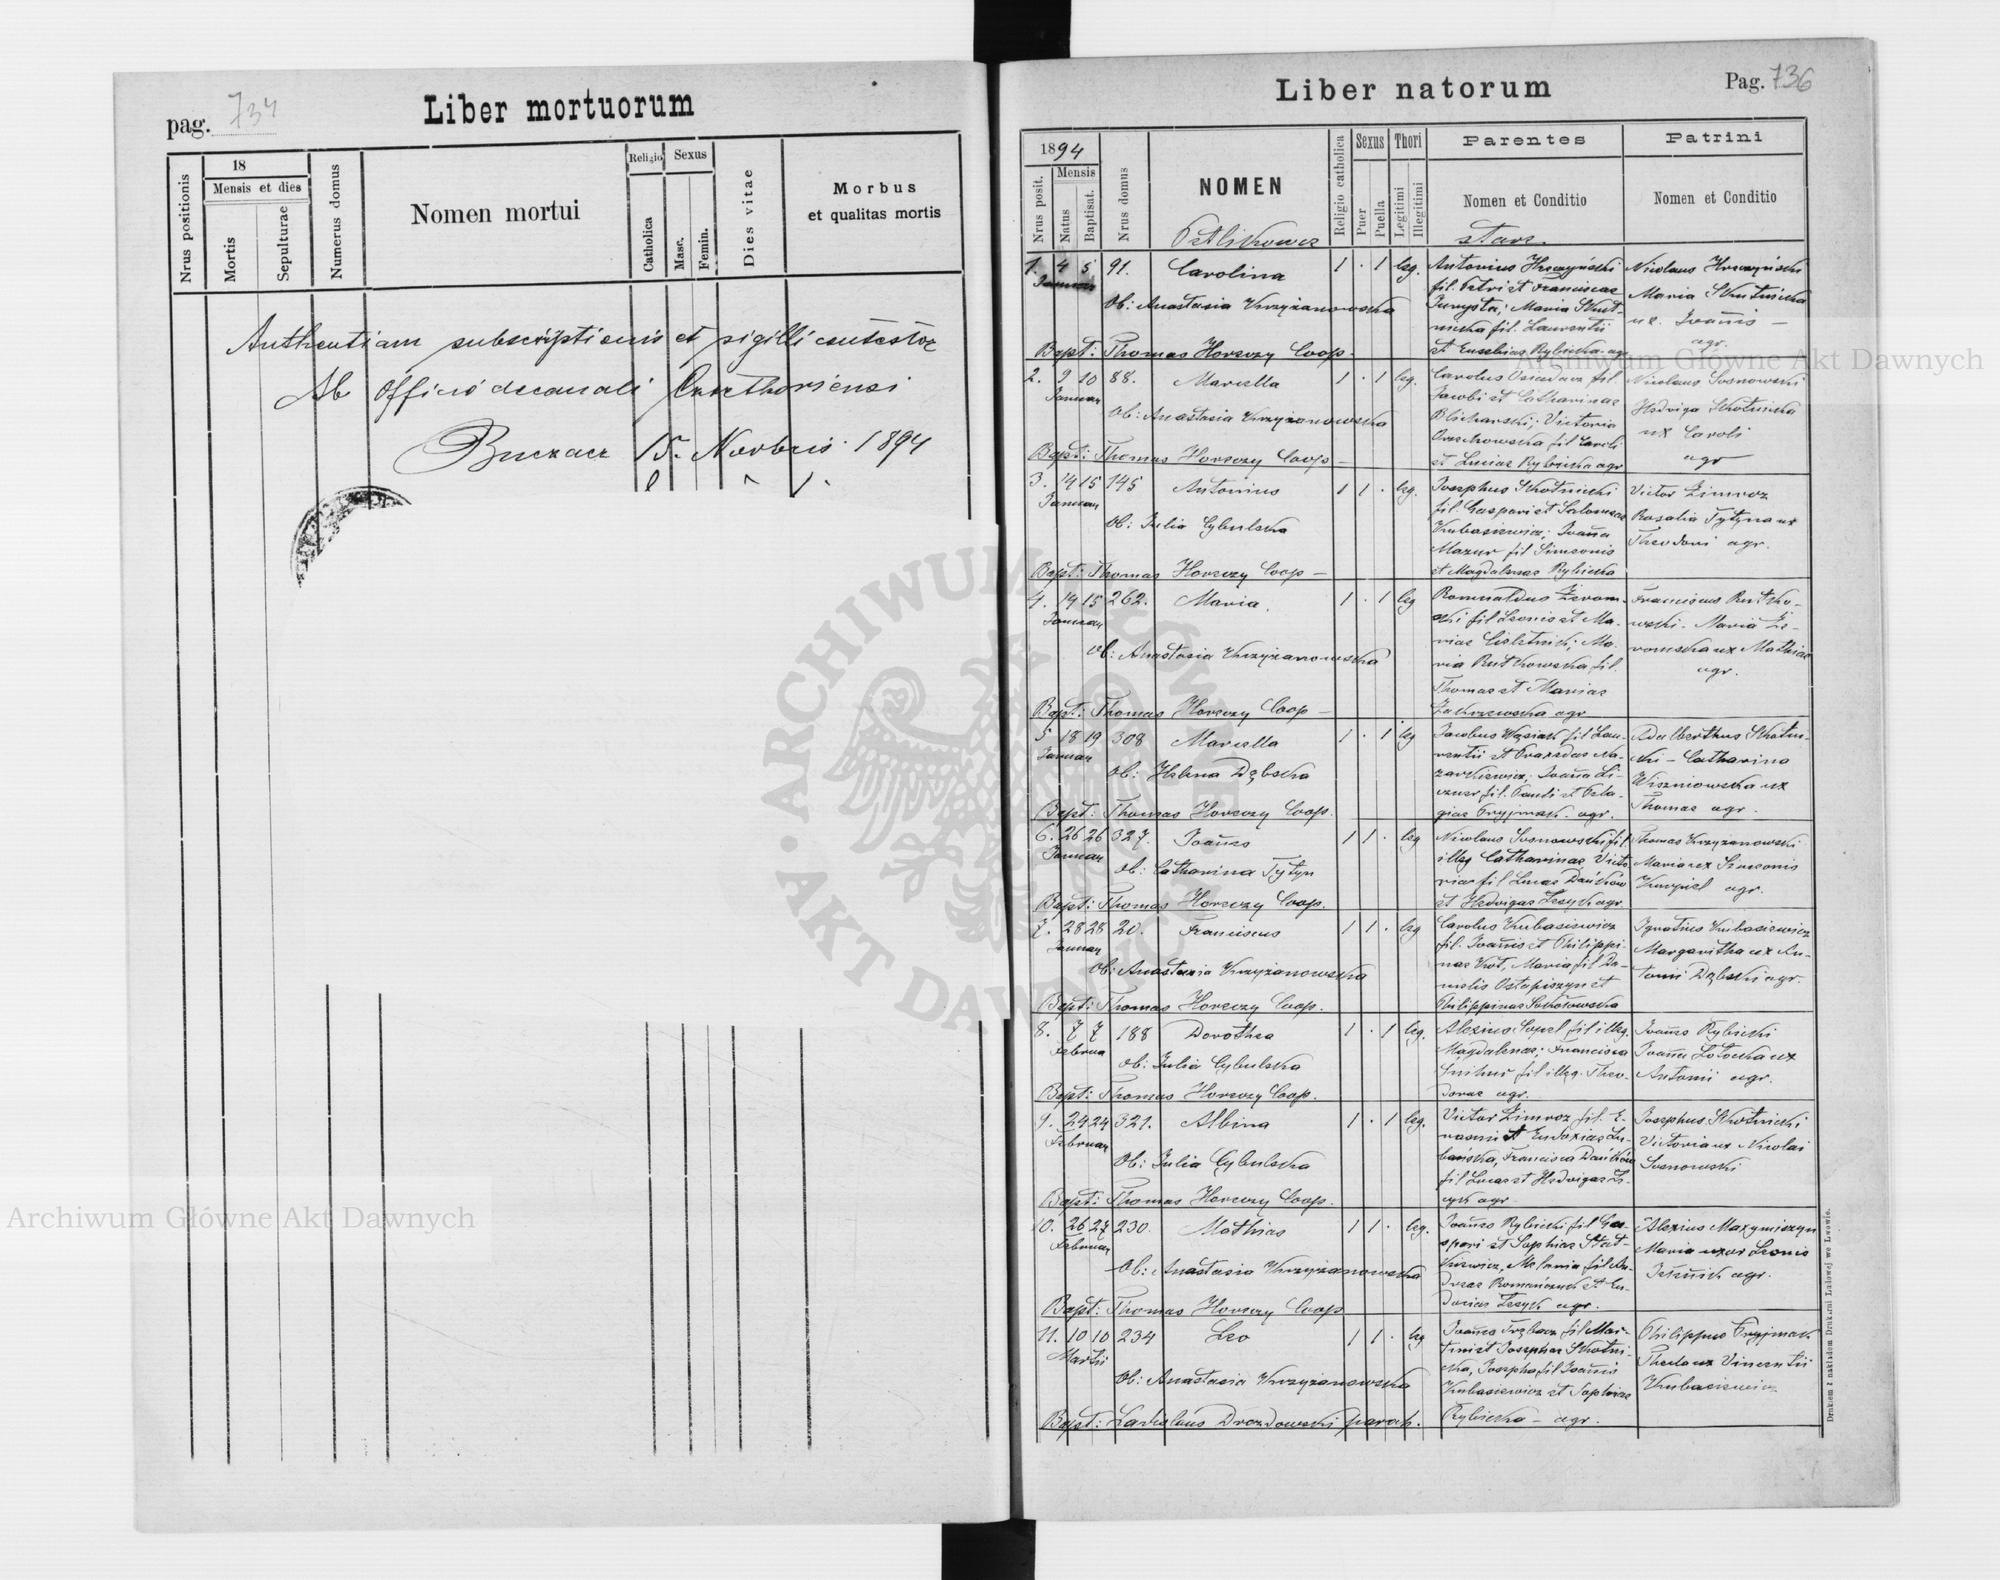 pag. 734
Liber mortuorum
Nrus positionis
18
Mensis et dies
Mortis
Sepulturae
Numerus domus
Nomen mortui
Religio
Catholica
Sexus
Masc.
Femin.
Dies vitae
Morbus
et qualitas mortis
Authentiam subscriptionis et sigilli
Ab Officio decanali
Buczacz 15. Novbris 1894
Liber natorum
Pag. 736
1894
Nrus posit.
Mensis
Natus
Baptisat.
Nrus domus
NOMEN
Religio catholica
Sexus
Puer
Puella
Thori
Legitimi
Illegitimi
Parentes
Nomen et Conditio
Patrini
Nomen et Conditio
Petlikowce
stare
1. 4 5 91. Carolina 1 . 1 leg.
Januar
Ob: Anastasia Krzyżanowska
Bapt: Thomas Horeczy Coop.
Antonius Hreczyński
fil. Petri et Franciscae
Maria Skot-
nicka fil. Laurentii
et Eusebiae Rybicka agr.
Nicolaus Hreczyński
Maria Skotnicka
ux. Joannis —
agr.
2. 9 10 88. Marcella 1 . 1 leg.
Januar
Ob: Anastasia Krzyżanowska
Bapt: Thomas Horeczy Coop —
Carolus
Jacobi et Catharinae
Victoria
Orzechowska fil Caroli
et Luciae Rybicka agr
Nicolaus Sosnowski
Hedviga Skotnicka
ux Caroli
agr
3. 14 15 145 Antonius 1 1 . leg.
Januar
Ob: Julia Cybulska
Bapt: Thomas Horeczy Coop —
Josephus Skotnicki
fil. Gaspari et Salomeae
Kubasiewicz; Joanna
Mazur fil Simeonis
et Magdalenae Rybicka
Victor Zimroz
Rosalia Tytyna ux
Theodori agr.
4. 14 15 262. Maria. 1 . 1 leg
Januar
Ob: Anastasia Krzyżanowska
Bapt: Thomas Horeczy Coop —
Romualdus Żerom-
ski fil Leonis et Ma-
riae Ma-
ria Rutkowska fil.
Thomae et Mariae
Zakrzewska agr
Franciscus Rutko-
wski. Maria Że-
romska ux Mathiae
agr.
5 18 19 308 Marcella 1 . 1 leg
Januar
Ob: Helena Dębska
Bapt: Thomas Horeczy Coop.
Jacobus Wąsiak fil Lau-
rentii et Praxedae Na-
zarkiewicz; Joanna Li-
czner fil. Pauli et Pela-
giae Pryjmak. agr.
Adalberthus Skotni-
cki — Catharina
Wiszniowska ux
Thomae agr.
6. 26 26 327. Joannes 1 1 . leg
Januar
Ob: Catharina Tytyn
Bapt: Thomas Horeczy Coop.
Nicolaus Sosnowski fil.
illeg Catharinae Victo
ria fil Lucae Dańków
et Hedvigae Lesyk agr.
Thomas Krzyżanowski
Maria ux Simeonis
agr.
7. 28 28 20. Franciscus 1 1 . leg
Januar
Ob: Anastasia Krzyżanowska
Bapt: Thomas Horeczy Coop.
Carolus Kubasiewicz
fil. Joannis et Philippi-
nae Kot, Maria fil Da-
nielis Ostapiszyn et
Philippinae Sokołowska
Ignatius Kubasiewicz
Margaritha ux An-
tonii Dębski agr.
8. 7 7 188 Dorothea 1 . 1 leg.
Februar
Ob: Julia Cybulska
Bapt: Thomas Horeczy Coop.
Alexius fil illeg.
Magdalenae; Francisca
fil illeg. Theo-
dorae agr.
Joannes Rybicki
Joanna Łotocka ux
Antonii agr.
9. 24 24 321. Albina 1 . 1 leg.
Februar
Ob: Julia Cybulska
Bapt: Thomas Horeczy Coop.
Victor Zimroz fil. E-
rasmi et Eudoxiae Lu-
bańska, Francisca Dańków
fil Lucae et Hedvigae Le-
syk agr
Josephus Skotnicki
Victoria ux Nicolai
Sosnowski
10. 26 27 230. Mathias 1 1 . leg.
Februar
Ob: Anastasia Krzyżanowska
Bapt: Thomas Horeczy Coop
Joannes Rybicki fil Gas-
pari et Sophiae Stat-
kiewicz, Melania fil An-
dreae Romańczuk et Eu-
dociae Lesyk agr.
Alexius Maxymiszyn
Maria uxor Leonis
agr.
11. 10 10 234 Leo 1 1 . leg
Martii
Ob: Anastasia Krzyżanowska
Bapt: Ladislaus Drozdowski paroch.
Joannes Trębacz fil Mar-
tini et Josephae Skotni-
cka, Josepha fil Joannis
Kubasiewicz et Sophiae
Rybicka — agr.
Philippus Pryjmak
Thecla ux Vincentii
Kubasiewicz
Drukiem i nakładem Drukarni Ludowej we Lwowie.
Archiwum Główne Akt Dawnych
Archiwum Główne Akt Dawnych
ARCHIWUM GŁÓWNE · AKT DAWNYCH ·